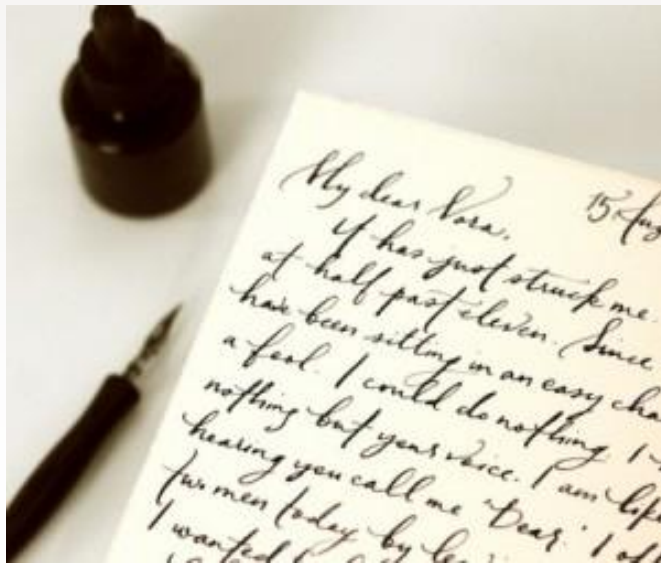 15 Aug
My dear Nora,
It has just struck me.
at half past eleven. Since
have been sitting in an easy cha
a fool. I could do nothing. I
nothing but your voice. I am like
hearing you call me 'Dear.' I off
two men today by lea
I wanted